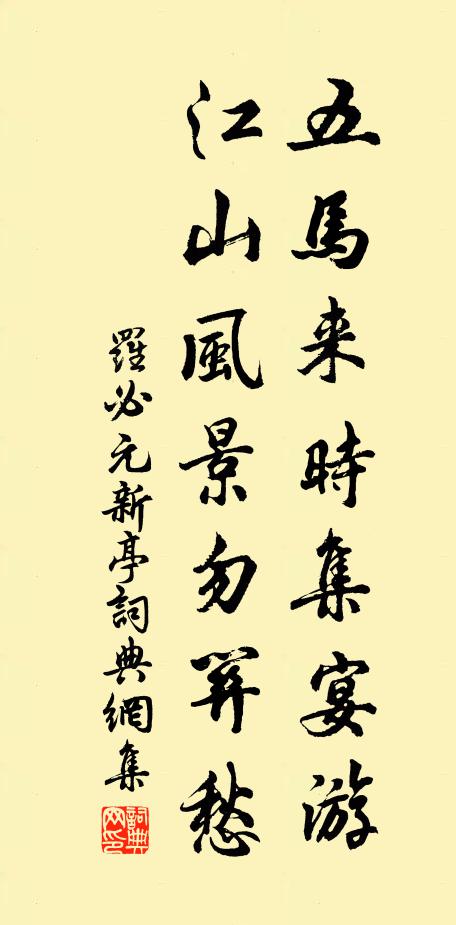 五馬来時集宴游
江山風景勿關愁
羅必元新亭詞典網集
詞典网印